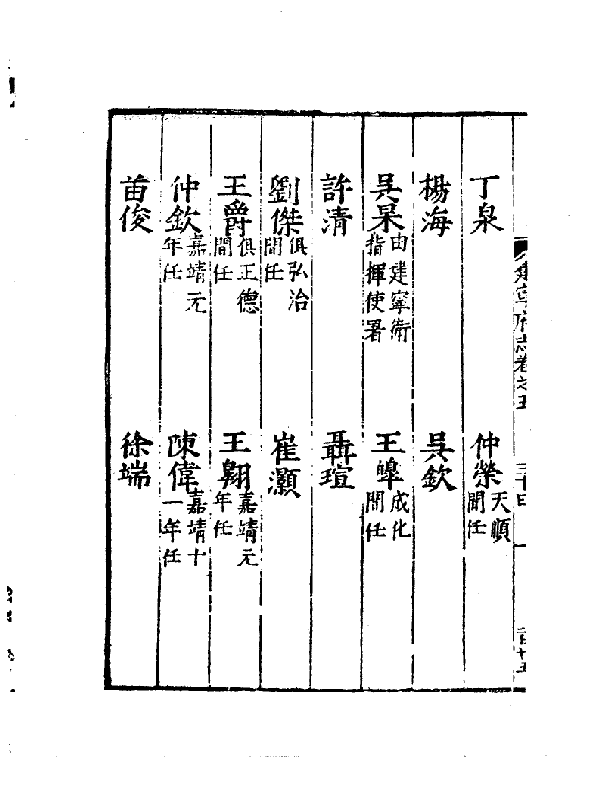 丁泉　仲榮天順間任
楊海　吳欽
吳杲由建寧衛指揮使署　王皞成化間任
許清　聶瑄
劉傑俱弘治間任　崔灝
王爵俱正德間任　王翱嘉靖元年任
仲欽嘉靖元年任　陳偉嘉靖十一年任
苗俊　徐端
建寧府志卷之五